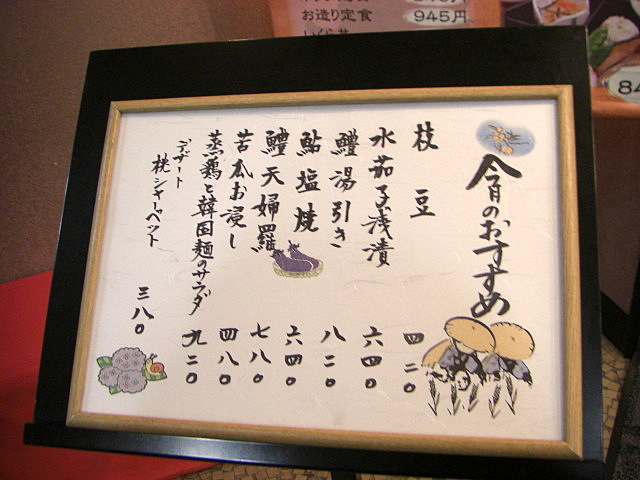 お造り定食 945円
84
今月のおすすめ
枝豆 四二〇
水茄子浅漬 六四〇
鱧湯引き 八二〇
鮎塩焼 六四〇
鱧天婦羅 七八〇
苦瓜お浸し 四八〇
蒸鶏と韓国麺のサラダ 九二〇
デザート
桃シャーベット 三八〇